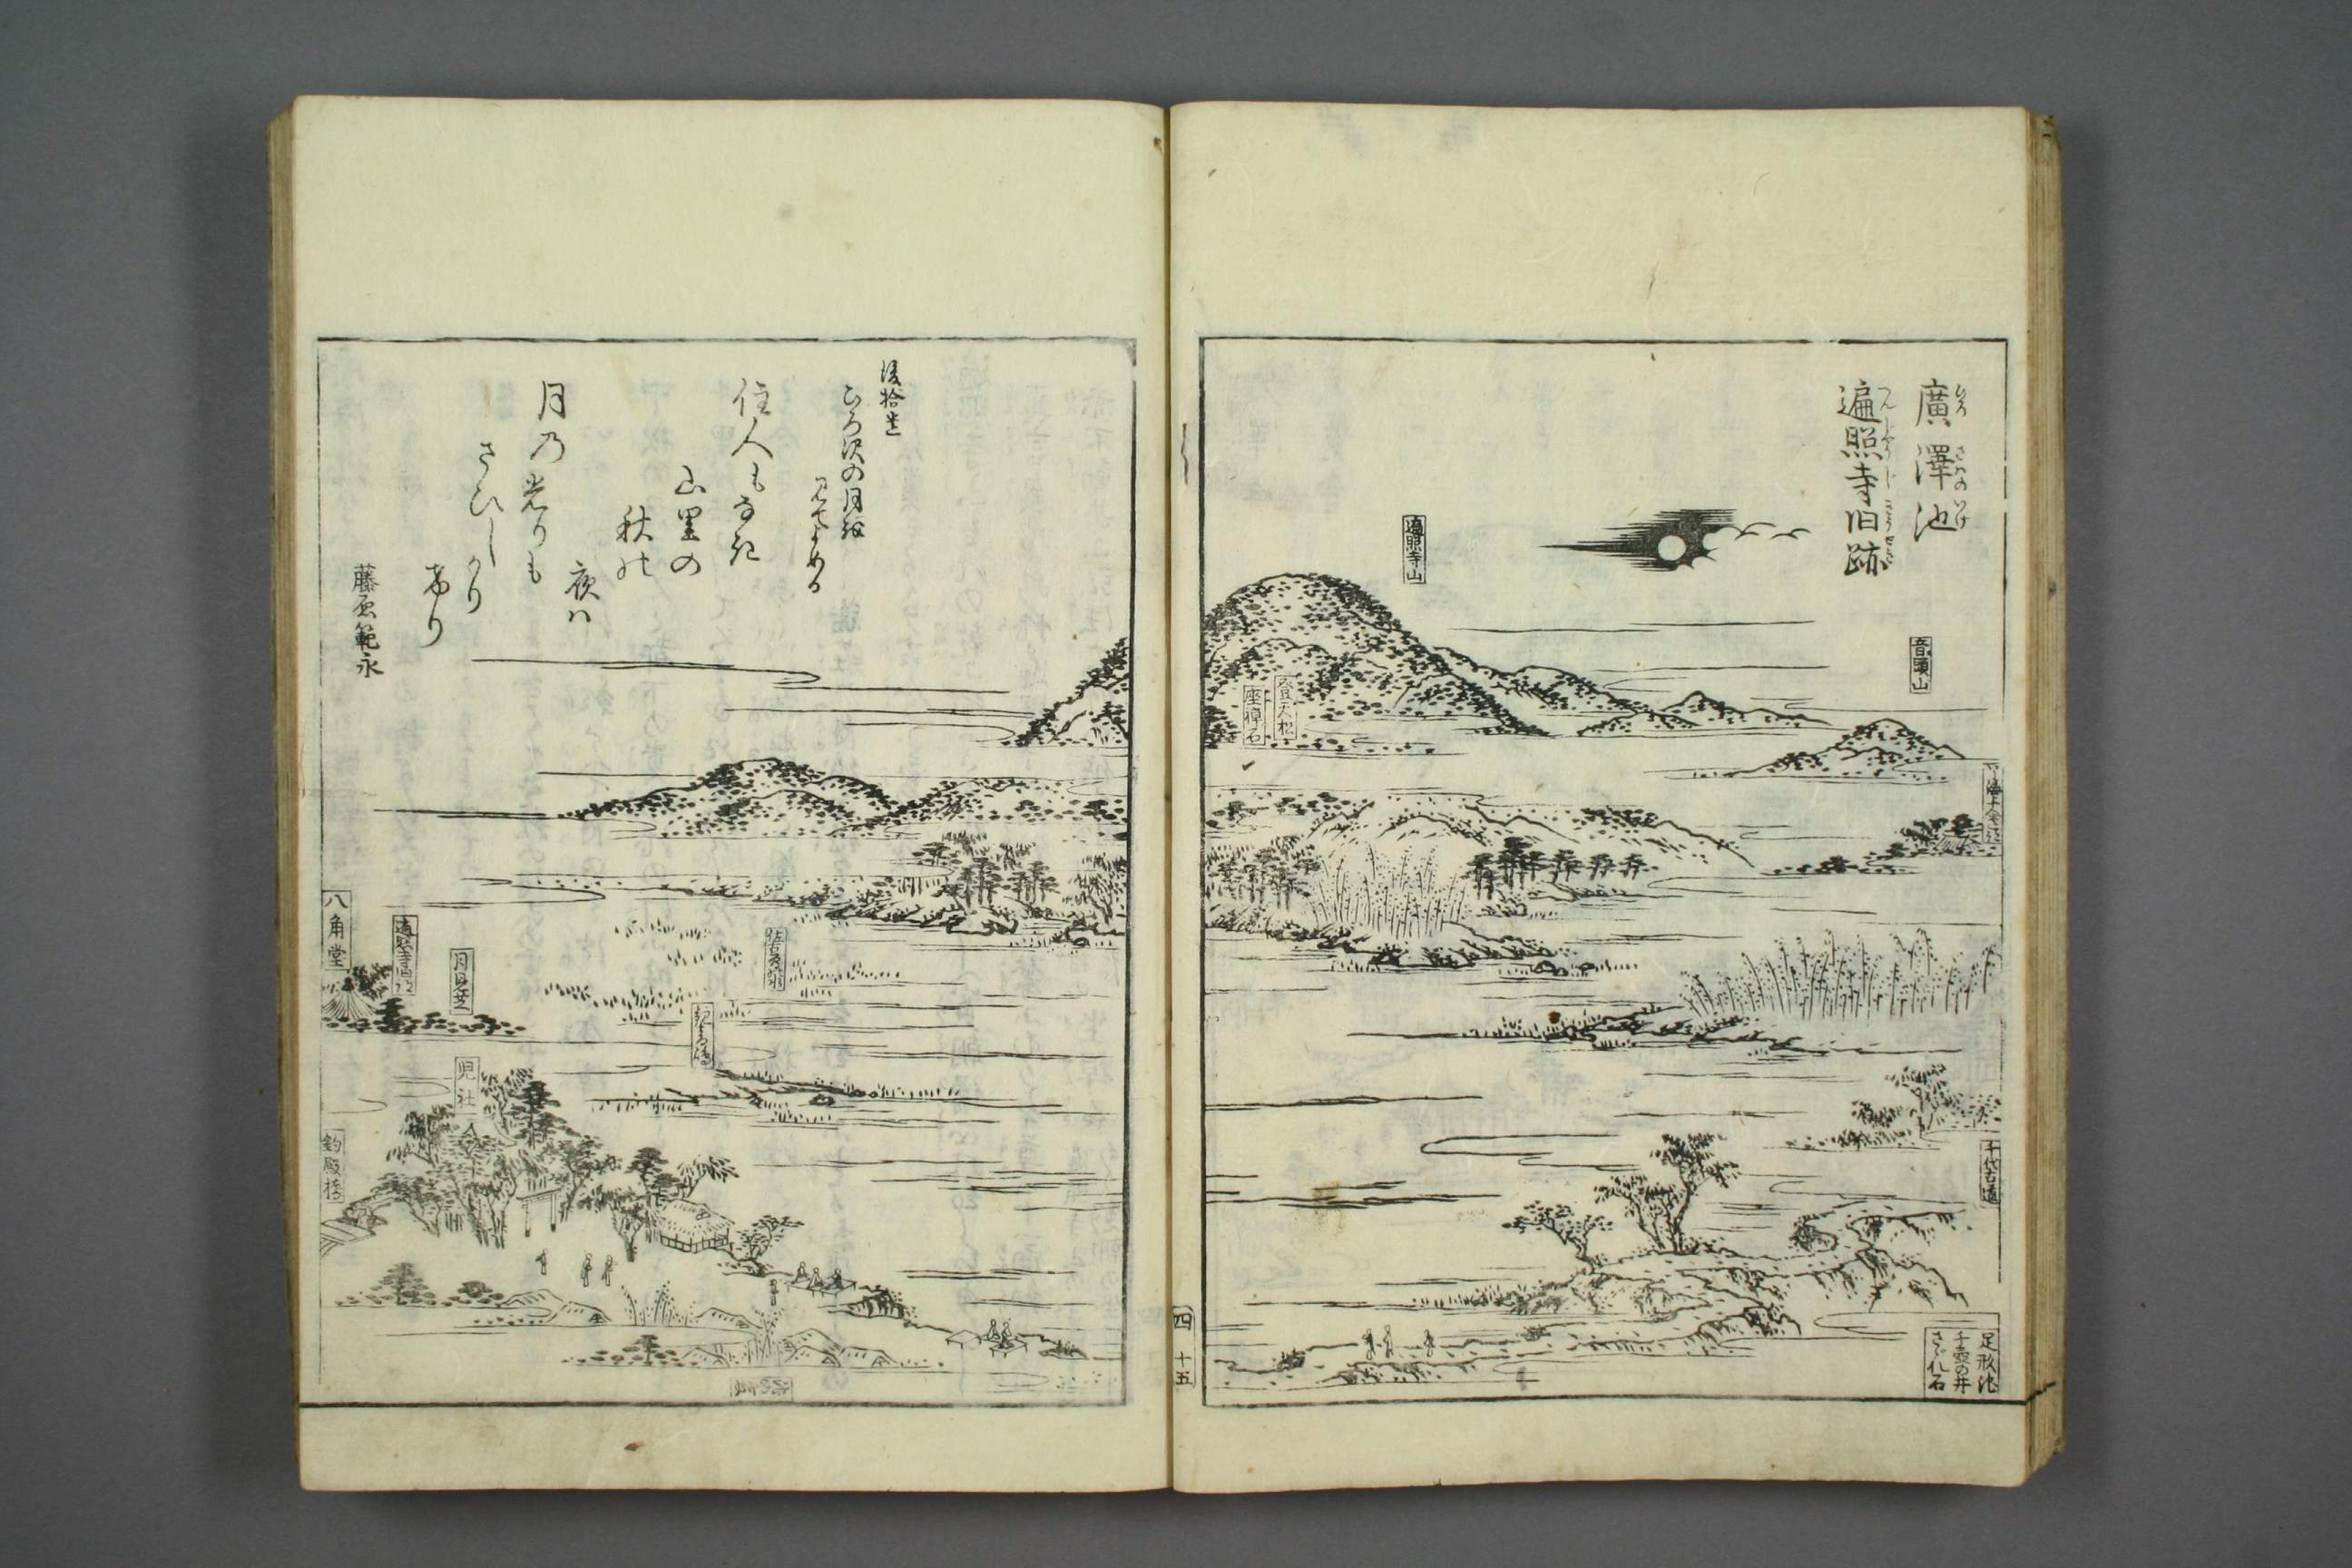 廣澤池
ひろさはのいけ
遍照寺旧跡
へんじやうじきうせき
音頭山
遍照寺山
登天松
座禅石
千代古道
足形池
千壺の井
さゞれ石
四
十五
後拾遺
ひろ沢の月を
見てよめる
住人もなき
山里の
秋の
夜は
月乃光りも
さひしかり
けり
藤原範永
八角堂
遍照寺旧跡
月見芝
児社
釣殿橋